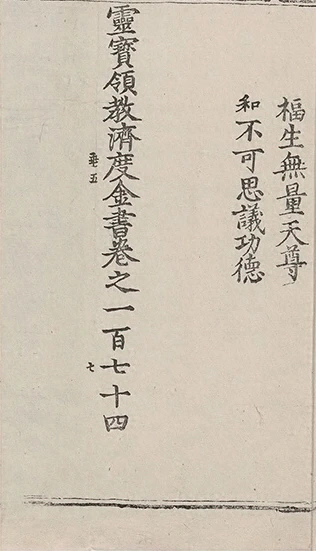 福生無量天尊
和不可思議功德
靈寶領教濟度金書卷之一百七十四
五
七